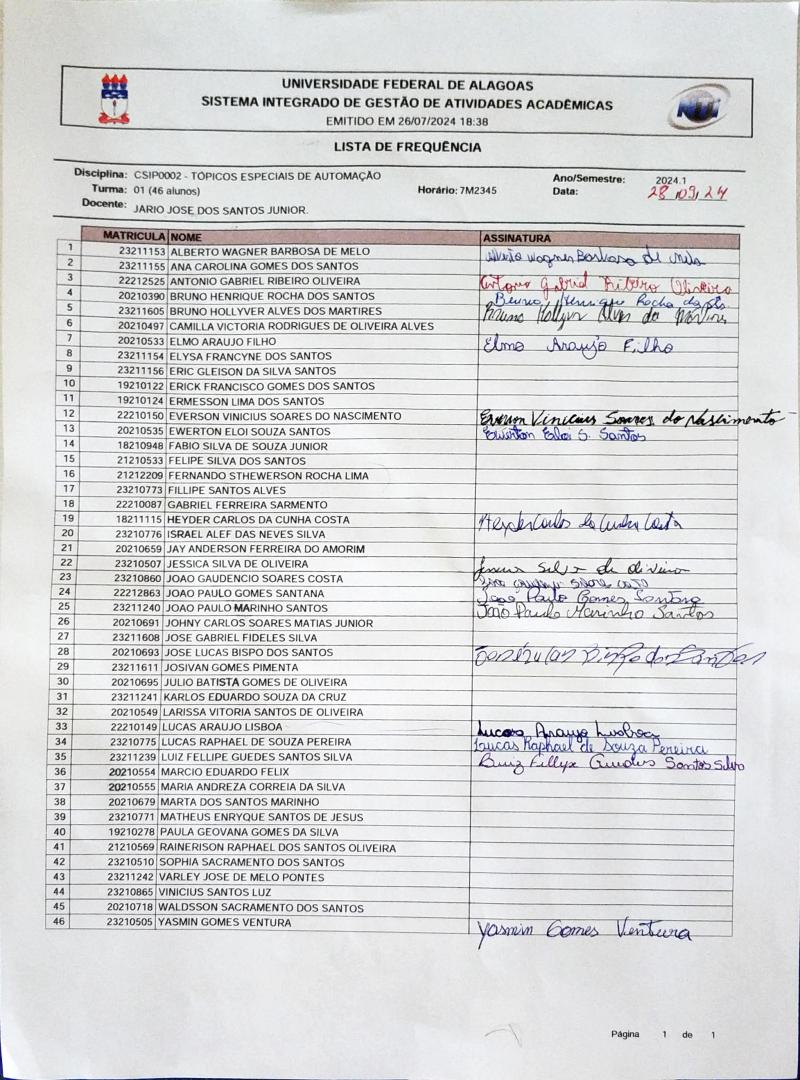 UNIVERSIDADE FEDERAL DE ALAGOAS
SISTEMA INTEGRADO DE GESTÃO DE ATIVIDADES ACADÊMICAS
EMITIDO EM 26/07/2024 18:38
NTI
LISTA DE FREQUÊNCIA
Disciplina: CSIP0002 - TÓPICOS ESPECIAIS DE AUTOMAÇÃO Ano/Semestre: 2024.1
Turma: 01 (46 alunos) Horário: 7M2345 Data: 28/09/24
Docente: JARIO JOSE DOS SANTOS JUNIOR.
MATRICULA NOME ASSINATURA
1 23211153 ALBERTO WAGNER BARBOSA DE MELO Alberto Wagner Barbosa de Melo
2 23211155 ANA CAROLINA GOMES DOS SANTOS
3 22212525 ANTONIO GABRIEL RIBEIRO OLIVEIRA Antonio Gabriel Ribeiro Oliveira
4 20210390 BRUNO HENRIQUE ROCHA DOS SANTOS Bruno Henrique Rocha
5 23211605 BRUNO HOLLYVER ALVES DOS MARTIRES Bruno Hollyver Alves dos Martires
6 20210497 CAMILLA VICTORIA RODRIGUES DE OLIVEIRA ALVES
7 20210533 ELMO ARAUJO FILHO Elmo Araujo Filho
8 23211154 ELYSA FRANCYNE DOS SANTOS
9 23211156 ERIC GLEISON DA SILVA SANTOS
10 19210122 ERICK FRANCISCO GOMES DOS SANTOS
11 19210124 ERMESSON LIMA DOS SANTOS
12 22210150 EVERSON VINICIUS SOARES DO NASCIMENTO Everson Vinicius Soares do Nascimento
13 20210535 EWERTON ELOI SOUZA SANTOS Ewerton Eloi S. Santos
14 18210948 FABIO SILVA DE SOUZA JUNIOR
15 21210533 FELIPE SILVA DOS SANTOS
16 21212209 FERNANDO STHEWERSON ROCHA LIMA
17 23210773 FILLIPE SANTOS ALVES
18 22210087 GABRIEL FERREIRA SARMENTO
19 18211115 HEYDER CARLOS DA CUNHA COSTA Heyder Carlos da Cunha Costa
20 23210776 ISRAEL ALEF DAS NEVES SILVA
21 20210659 JAY ANDERSON FERREIRA DO AMORIM
22 23210507 JESSICA SILVA DE OLIVEIRA Silva de Oliveira
23 23210860 JOAO GAUDENCIO SOARES COSTA
24 22212863 JOAO PAULO GOMES SANTANA João Paulo Gomes Santana
25 23211240 JOAO PAULO MARINHO SANTOS João Paulo Marinho Santos
26 20210691 JOHNY CARLOS SOARES MATIAS JUNIOR
27 23211608 JOSE GABRIEL FIDELES SILVA
28 20210693 JOSE LUCAS BISPO DOS SANTOS José Lucas Bispo dos Santos
29 23211611 JOSIVAN GOMES PIMENTA
30 20210695 JULIO BATISTA GOMES DE OLIVEIRA
31 23211241 KARLOS EDUARDO SOUZA DA CRUZ
32 20210549 LARISSA VITORIA SANTOS DE OLIVEIRA
33 22210149 LUCAS ARAUJO LISBOA Lucas Araujo Lisboa
34 23210775 LUCAS RAPHAEL DE SOUZA PEREIRA Lucas Raphael de Souza Pereira
35 23211239 LUIZ FELLIPE GUEDES SANTOS SILVA Luiz Fellipe Guedes Santos Silva
36 20210554 MARCIO EDUARDO FELIX
37 20210555 MARIA ANDREZA CORREIA DA SILVA
38 20210679 MARTA DOS SANTOS MARINHO
39 23210771 MATHEUS ENRYQUE SANTOS DE JESUS
40 19210278 PAULA GEOVANA GOMES DA SILVA
41 21210569 RAINERISON RAPHAEL DOS SANTOS OLIVEIRA
42 23210510 SOPHIA SACRAMENTO DOS SANTOS
43 23211242 VARLEY JOSE DE MELO PONTES
44 23210865 VINICIUS SANTOS LUZ
45 20210718 WALDSSON SACRAMENTO DOS SANTOS
46 23210505 YASMIN GOMES VENTURA Yasmin Gomes Ventura
Página 1 de 1